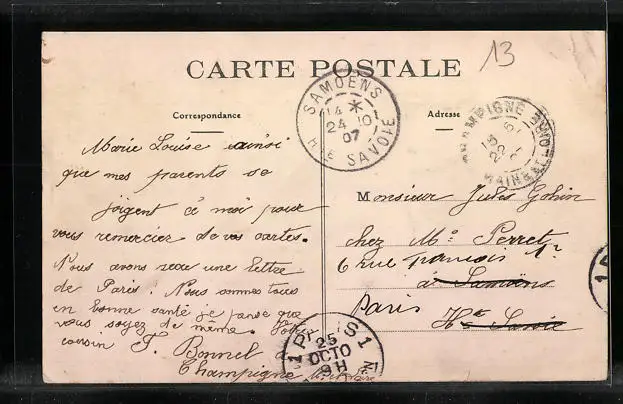 13
CARTE POSTALE
Correspondance
Adresse
SAMOENS
14 *
24 10
07
HTE SAVOIE
CHAMPIGNE
MAINE ET LOIRE
Marie Louise ainsi
que mes parents se
joigent à moi pour
vous remercier de vos cartes.
Nous avons reçu une lettre
de Paris. Nous sommes tous
en bonne santé je pense que
vous soyez de même. Votre
cousin F. Bonnel
Champigné
Monsieur Jules Gohin
chez Mr Perret
6 rue François 1r
à Samoëns
Paris
Hte Savoie
25
OCTO
9H